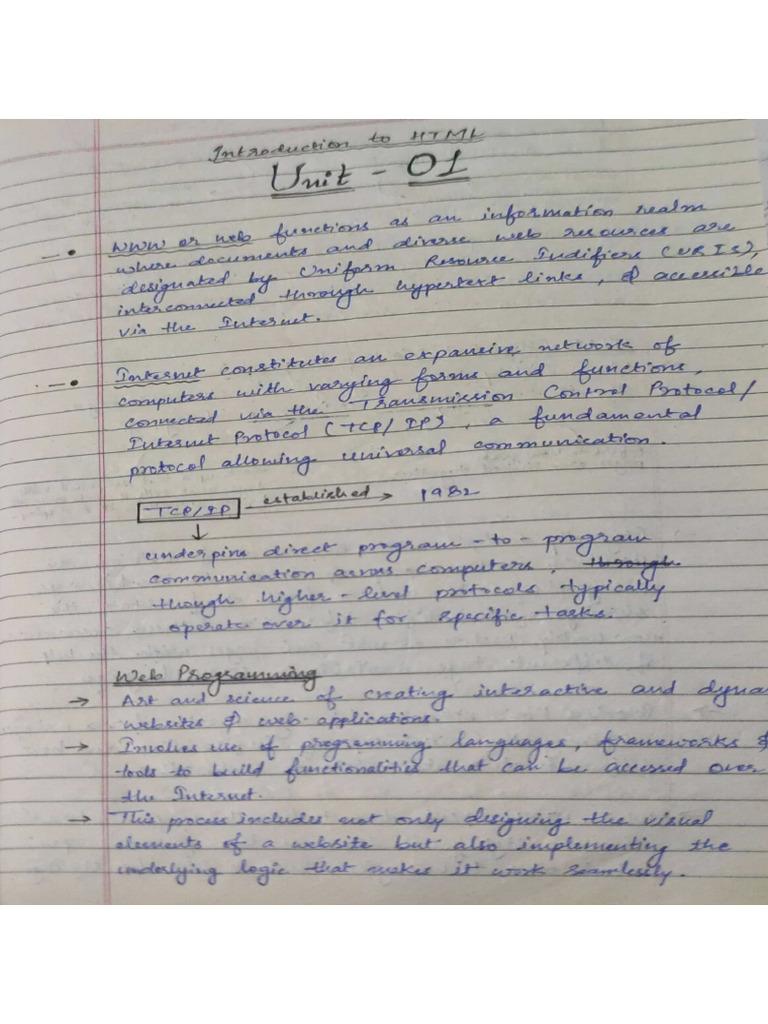 Introduction to HTML
Unit - 01
WWW or web functions as an information realm
where documents and diverse web resources are
designated by Uniform Resource Indifiers (URIs),
interconnected through hypertext links, & accessible
via the Internet.
Internet constitutes an expansive network of
computers with varying forms and functions,
connected via the Transmission Control Protocol/
Internet Protocol (TCP/IP), a fundamental
protocol allowing universal communication.
TCP/IP established → 1982
↓
underpins direct program-to-program
communication across computers, through
though higher-level protocols typically
operate over it for specific tasks.
Web Programming
→ Art and science of creating interactive and dyna
websites & web applications.
→ Involves use of programming languages, frameworks &
tools to build functionalities that can be accessed over
the Internet.
→ This process includes not only designing the visual
elements of a website but also implementing the
underlying logic that makes it work seamlessly.